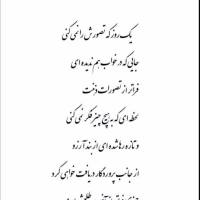 یک روز که تصورش را نمی کنی
جایی که در خواب هم ندیده ای
فراتر از تصورات ذهنت
لحظه ای که به هیچ چیز فکر نمی کنی
و تازه رها شده ای از بند آرزو
از جانب پروردگار دریافت خواهی کرد